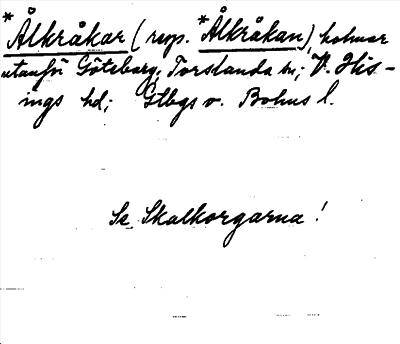 *Ålkråkar (resp. *Ålkråkan), holmar
utanför Göteborg, Torslanda sn; V. His-
ings hd; Gtbgs o. Bohus l.
Se Skalkorgarna!